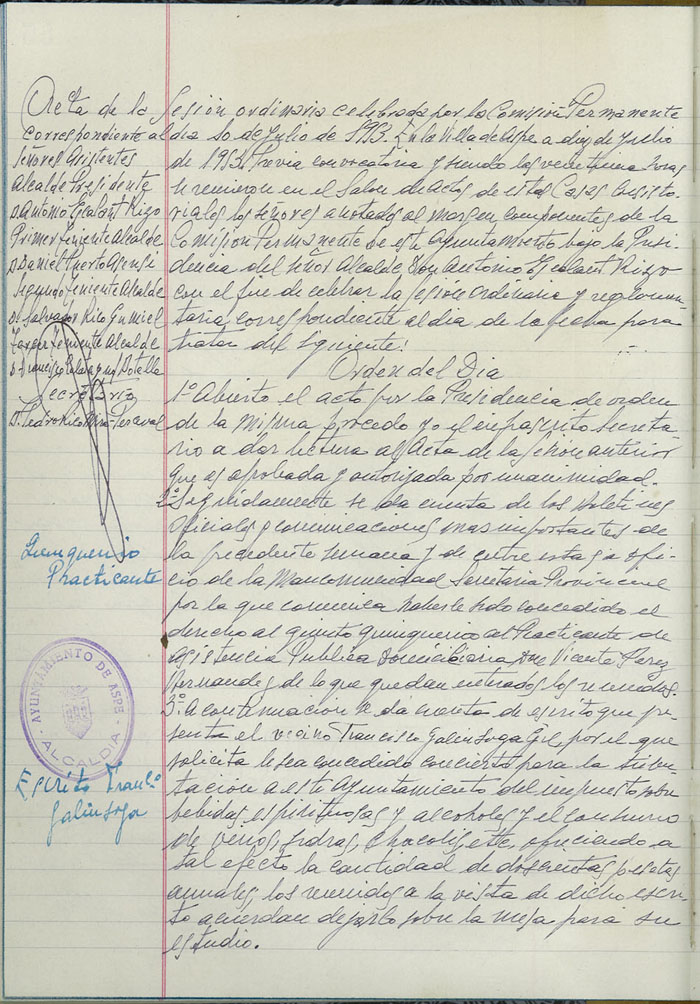 Acta de la Sesión ordinaria celebrada por la Comisión Permanente
correspondiente al dia 10 de Julio de 1953. En la Villa de Aspe a diez de Julio
de 1953. Previa convocatoria y siendo las veintiuna horas
se reunieron en el Salon de actos de estas Casas Consisto-
riales los señores anotados al margen componentes de la
Comisión Permanente de este Ayuntamiento bajo la Presi-
dencia del señor Alcalde Don Antonio Escalant Rizo
con el fin de celebrar la sesión ordinaria y reglamen-
taria correspondiente al dia de la fecha para
tratar del siguiente:
Señores Asistentes
Alcalde Presidente
D. Antonio Escalant Rizo
Primer Teniente Alcalde
D. Daniel Puerto Asensi
Segundo Teniente Alcalde
D. Salvador Rico Gumiel
Tercer Teniente Alcalde
D. Francisco Botella
Secretario
D. Pedro Rico
Orden del Dia
1º Abierto el acto por la Presidencia de orden
de la misma procedo yo el infrascrito Secreta-
rio a dar lectura al Acta de la Sesión anterior
que es aprobada y autorizada por unanimidad.
2º Seguidamente se da cuenta de los Boletines
oficiales y comunicaciones mas importantes de
la precedente semana y de entre estas a ofi-
cio de la Mancomunidad Sanitaria Provincial
por la que comunica haberle sido concedido el
derecho al quinto quinquenio al Practicante de
Asistencia Publica Domiciliaria Don Vicente Perez
Hernandez de lo que quedan enterados los reunidos.
Quinquenio
Practicante
3º A continuacion se da cuenta de escrito que pre-
senta el vecino Francisco Galinsoga Gil, por el que
solicita le sea concedido concierto para la tribu-
tacion a este Ayuntamiento del impuesto sobre
bebidas espirituosas y alcoholes y el consumo
de vinos, sidras, chacolis, etc, ofreciendo a
tal efecto la cantidad de doscientas pesetas
anuales, los reunidos a la vista de dicho escri-
to acuerdan dejarlo sobre la mesa para su
estudio.
AYUNTAMIENTO DE ASPE
ALCALDIA
Escrito Franco
Galinsoga